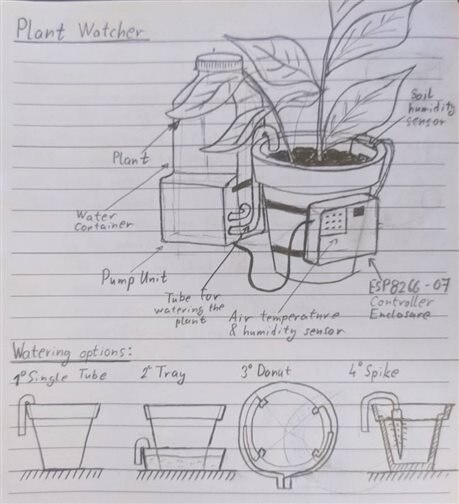 Plant Watcher
Soil
humidity
sensor
Plant
Water
Container
Pump Unit
Tube for
watering the
plant
Air temperature
& humidity sensor
ESP8266-07
Controller
Enclosure
Watering options:
1° Single Tube
2° Tray
3° Donut
4° Spike